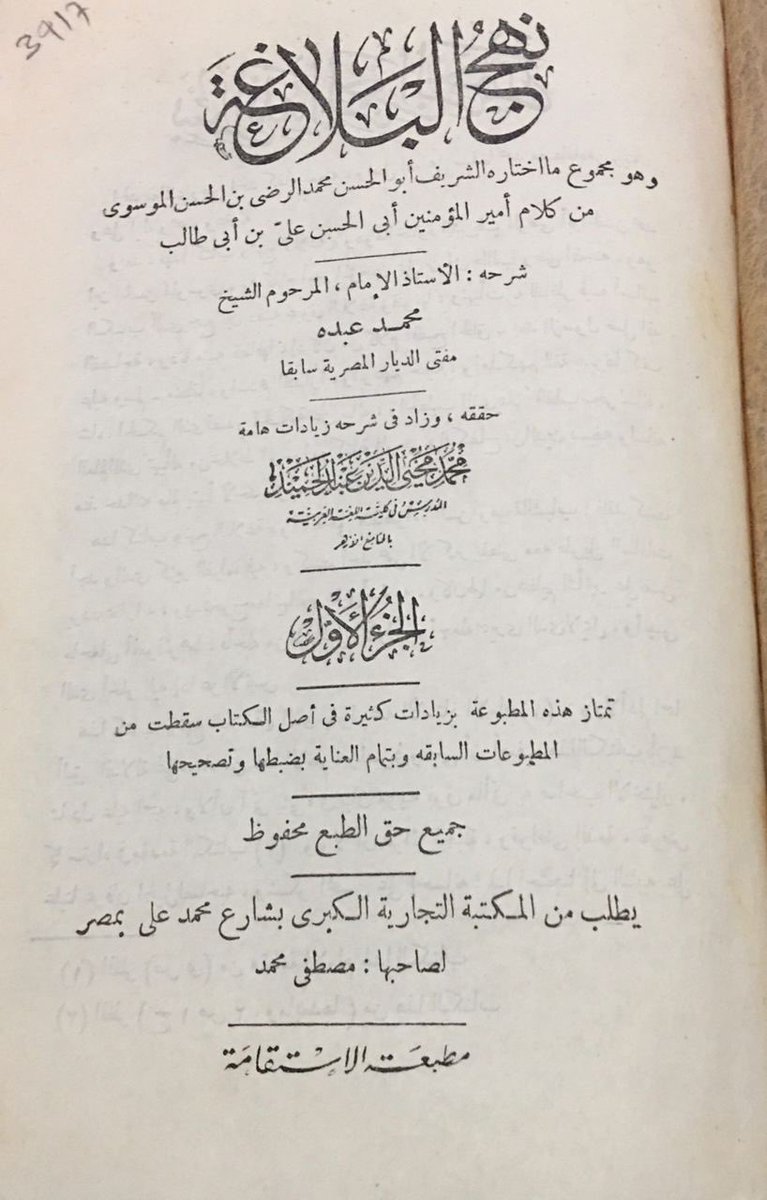 3917
نهج البلاغة
وهو مجموع ما اختاره الشريف أبو الحسن محمد الرضى بن الحسن الموسوى
من كلام أمير المؤمنين أبى الحسن علىّ بن أبى طالب
شرحه : الأستاذ الإمام ، المرحوم الشيخ
محمد عبده
مفتى الديار المصرية سابقا
حققه ، وزاد فى شرحه زيادات هامة
محمد محيى الدين عبد الحميد
المدرس فى كلية اللغة العربية
بالجامع الأزهر
الجزء الأول
تمتاز هذه المطبوعة بزيادات كثيرة فى أصل الكتاب سقطت من
المطبوعات السابقه وبتمام العناية بضبطها وتصحيحها
جميع حق الطبع محفوظ
يطلب من المكتبة التجارية الكبرى بشارع محمد على بمصر
لصاحبها : مصطفى محمد
مطبعة الاستقامة